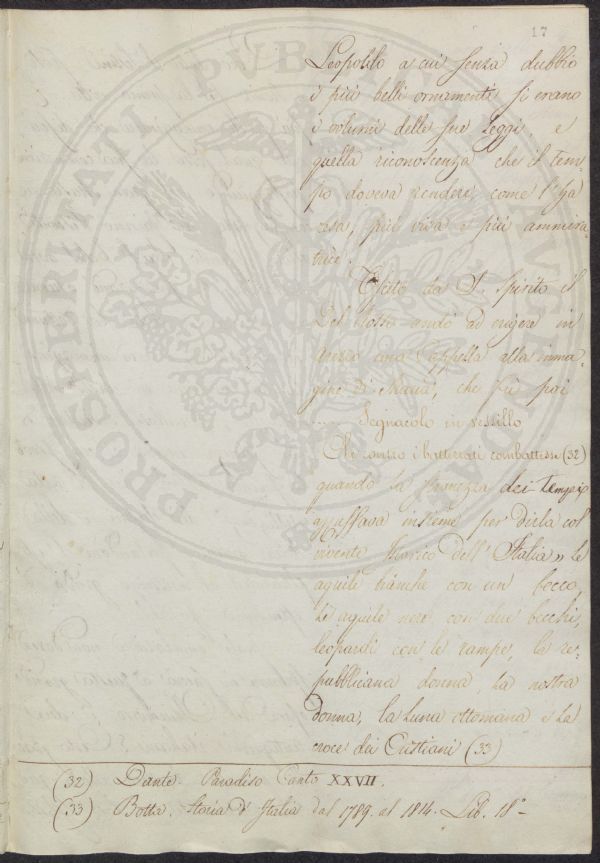 17
Leopoldo a cui senza dubbio
i più belli ornamenti si erano
i volumi delle sue Leggi, e
quella riconoscenza che il tem-
po doveva rendere, come l'ha
resa, più viva e più ammira-
trice.
da S. Spirito il
Del Rosso andò ad erigere in
Arezzo una Cappella alla imma-
gine di Maria, che fù poi
.... Segnacolo in vessillo
Che contro i battezzati combattesse (32)
quando la stranezza dei tempi
azzuffava insieme per dirla col
vivente Storico dell'Italia » le
aquile bianche con un becco,
le aquile nere con due becchi,
leopardi con le rampe, la re-
pubblicana donna, la nostra
donna, la Luna ottomana e la
croce dei Cristiani (33)
(32) Dante. Paradiso Canto XXVII.
(33) Botta. Storia d'Italia dal 1789. al 1814. Lib. 18°
PROSPERITATI PUBLICAE AUGENDAE